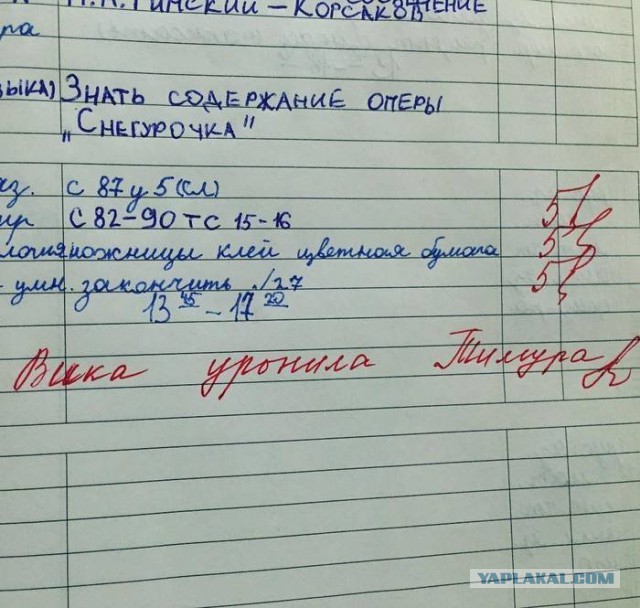 Н. А. РИМСКИЙ – КОРСАКОВ
ЧЕНИЕ
ра
ЗЫКА) ЗНАТЬ СОДЕРЖАНИЕ ОПЕРЫ
„СНЕГУРОЧКА"
яз. с 87 у 5 (сл) 5
ир с 82–90 ТС 15–16 5
логия ножницы клей цветная бумага 5
умн. закончить
13 45 – 17 20
Вика уронила Тимура
YAPLAKAL.COM